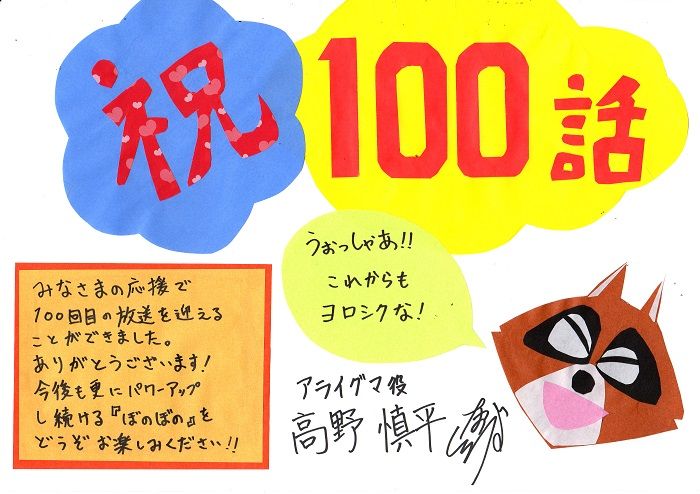 祝
100話
うぉっしゃあ!!
これからも
ヨロシクな!
みなさまの応援で
100回目の放送を迎える
ことができました。
ありがとうございます!
今後も更にパワーアップ
し続ける『ぼのぼの』を
どうぞお楽しみください!!
アライグマ役
高野 慎平